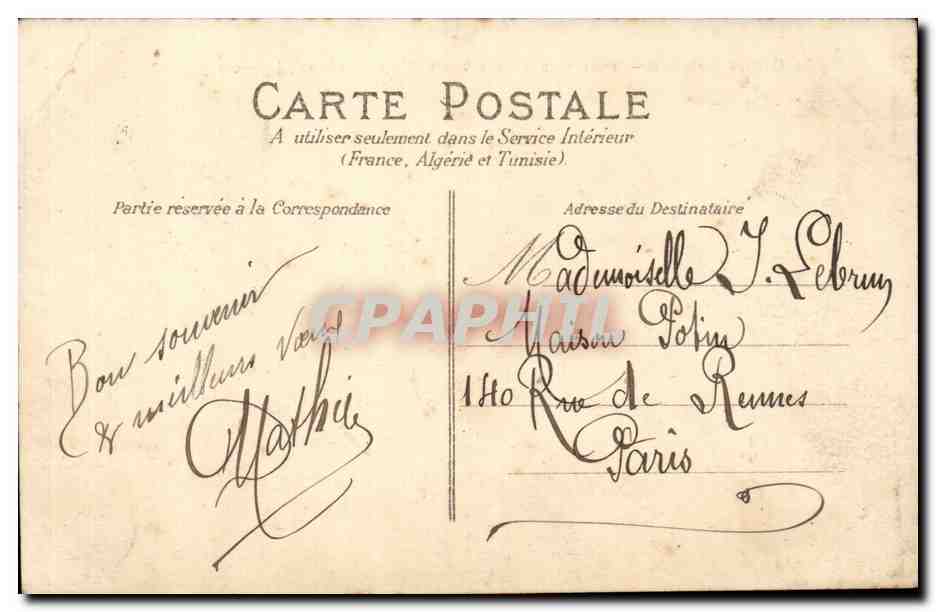 CARTE POSTALE
A utiliser seulement dans le Service Intérieur
(France, Algérie et Tunisie).
Partie réservée à la Correspondance
Bon souvenir
& meilleurs vœux
Adresse du Destinataire
Mademoiselle J. Lebrun
Maison Potin
140 Rue de Rennes
Paris
CPAPHIL